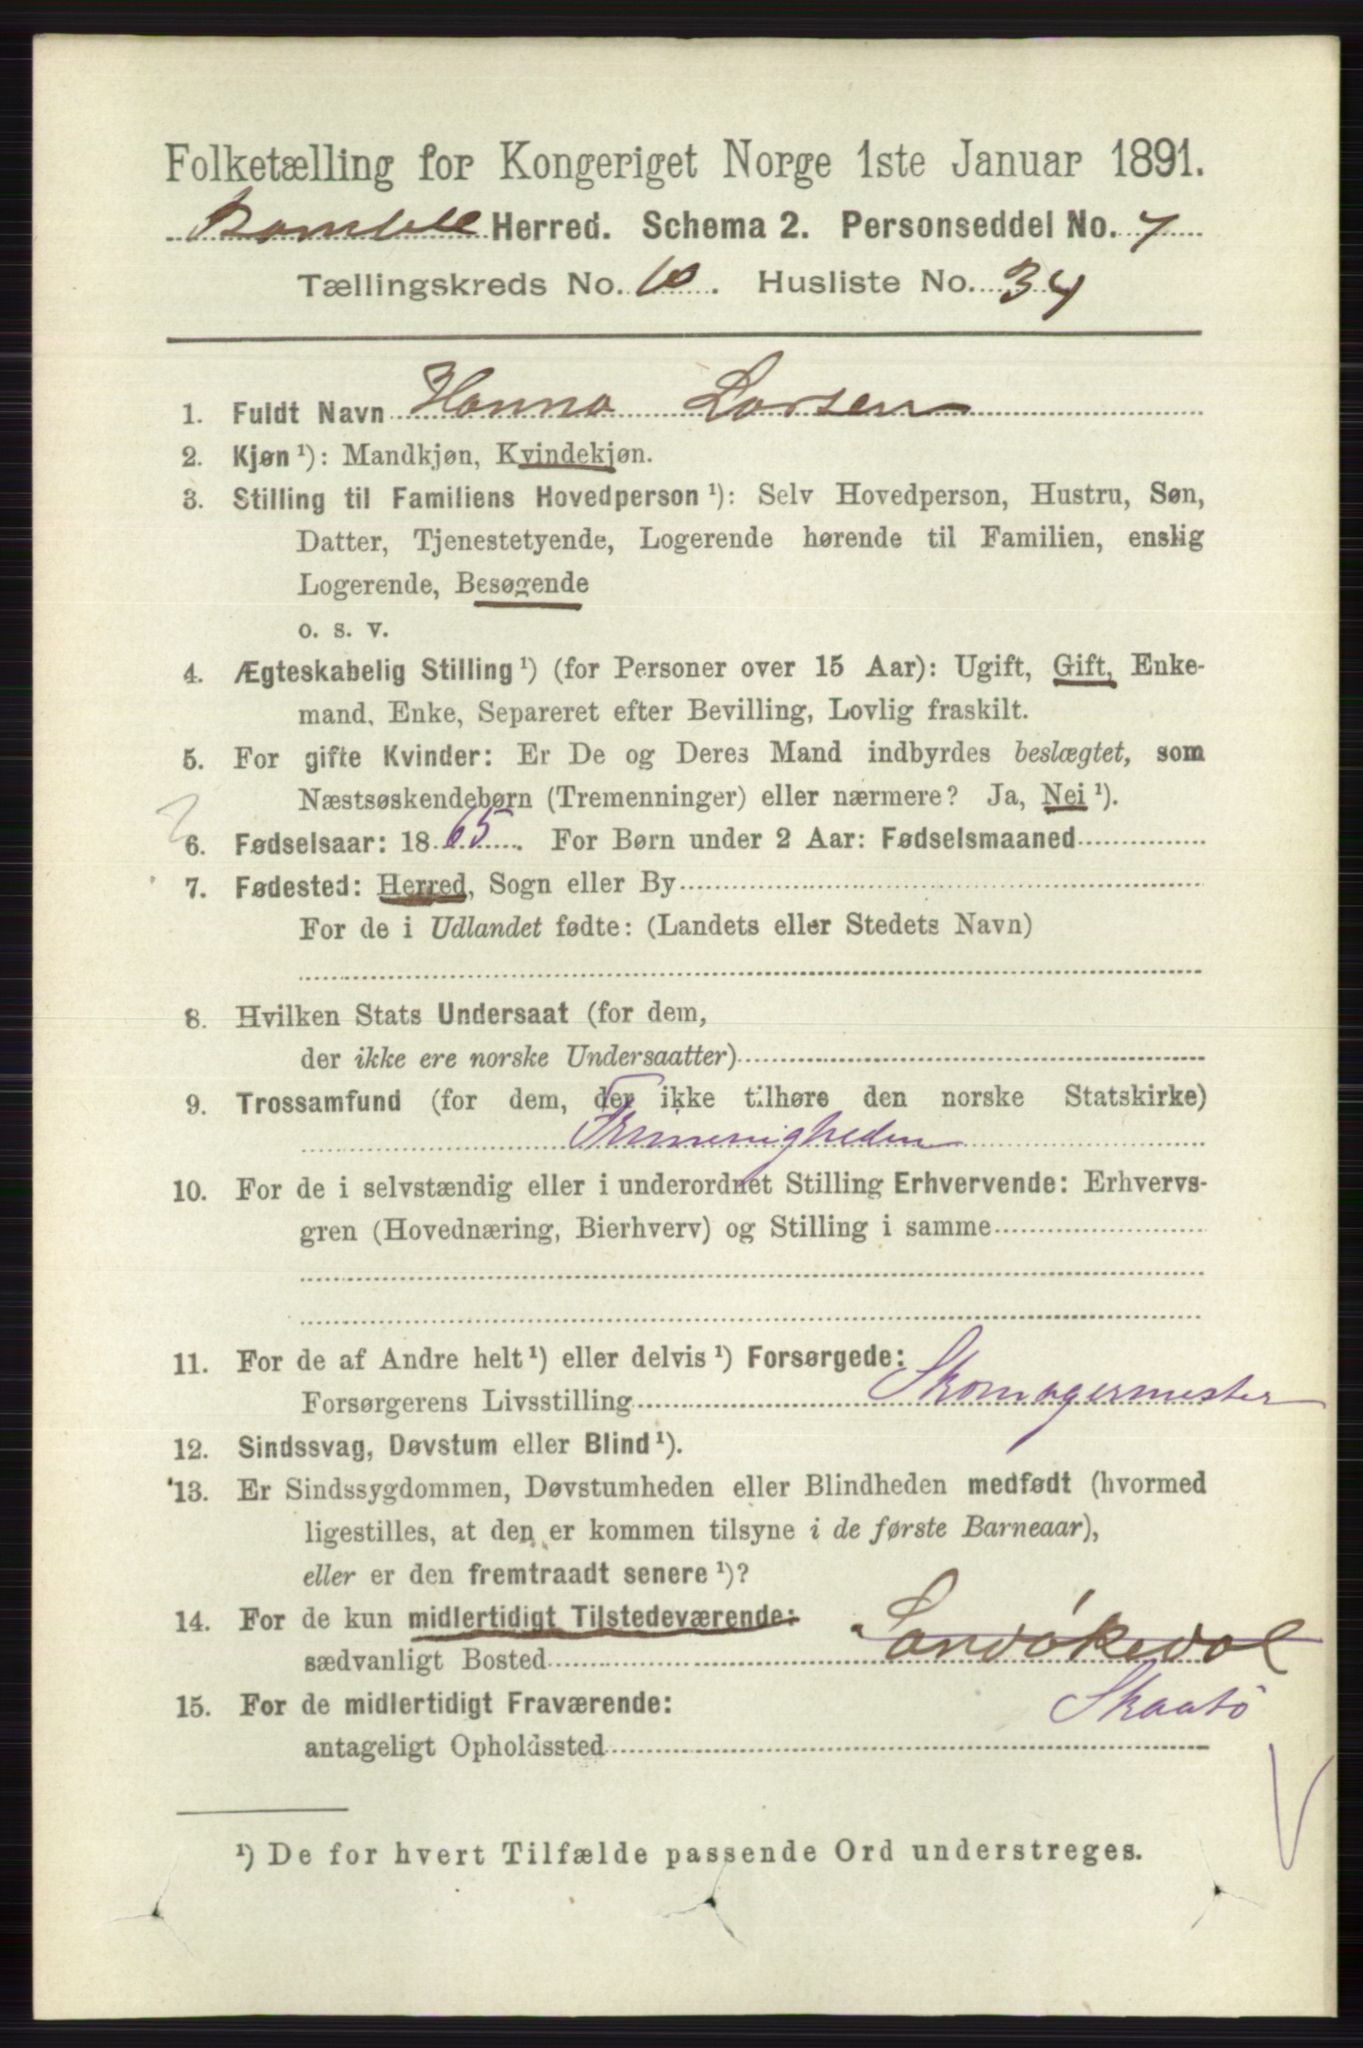 Folketælling for Kongeriget Norge 1ste Januar 1891.
Bamble Herred. Schema 2. Personseddel No. 7
Tællingskreds No. 10. Husliste No. 34
1. Fuldt Navn Hanna Larsen
2. Kjøn ¹): Mandkjøn, Kvindekjøn.
3. Stilling til Familiens Hovedperson ¹): Selv Hovedperson, Hustru, Søn,
Datter, Tjenestetyende, Logerende hørende til Familien, enslig
Logerende, Besøgende
o. s. v.
4. Ægteskabelig Stilling ¹) (for Personer over 15 Aar): Ugift, Gift, Enke-
mand, Enke, Separeret efter Bevilling, Lovlig fraskilt.
5. For gifte Kvinder: Er De og Deres Mand indbyrdes beslægtet, som
Næstsøskendebørn (Tremenninger) eller nærmere? Ja, Nei ¹).
6. Fødselsaar: 1865. For Børn under 2 Aar: Fødselsmaaned
7. Fødested: Herred, Sogn eller By
For de i Udlandet fødte: (Landets eller Stedets Navn)
8. Hvilken Stats Undersaat (for dem,
der ikke ere norske Undersaatter)
9. Trossamfund (for dem, der ikke tilhøre den norske Statskirke)
Frimenigheden
10. For de i selvstændig eller i underordnet Stilling Erhvervende: Erhvervs-
gren (Hovednæring, Bierhverv) og Stilling i samme
11. For de af Andre helt ¹) eller delvis ¹) Forsørgede:
Forsørgerens Livsstilling Skomagermester
12. Sindssvag, Døvstum eller Blind ¹).
13. Er Sindssygdommen, Døvstumheden eller Blindheden medfødt (hvormed
ligestilles, at den er kommen tilsyne i de første Barneaar),
eller er den fremtraadt senere ¹)?
14. For de kun midlertidigt Tilstedeværende:
sædvanligt Bosted Sandøkedal
Skaatö
15. For de midlertidigt Fraværende:
antageligt Opholdssted
¹) De for hvert Tilfælde passende Ord understreges.